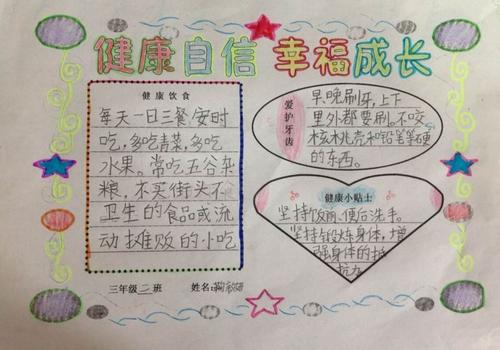 健康自信 幸福成长
健康饮食
每天一日三餐安时
吃，多吃青菜，多吃
水果。常吃五谷杂
粮，不买街头不
卫生的食品或流
动摊贩的小吃
爱护牙齿
早晚刷牙，上下
里外都要刷。不咬
核桃壳和铅笔等硬
的东西。
健康小贴士
坚持饭前、便后洗手。
坚持锻炼身体，增
强身体的抵
抗力
三年级二班 姓名：